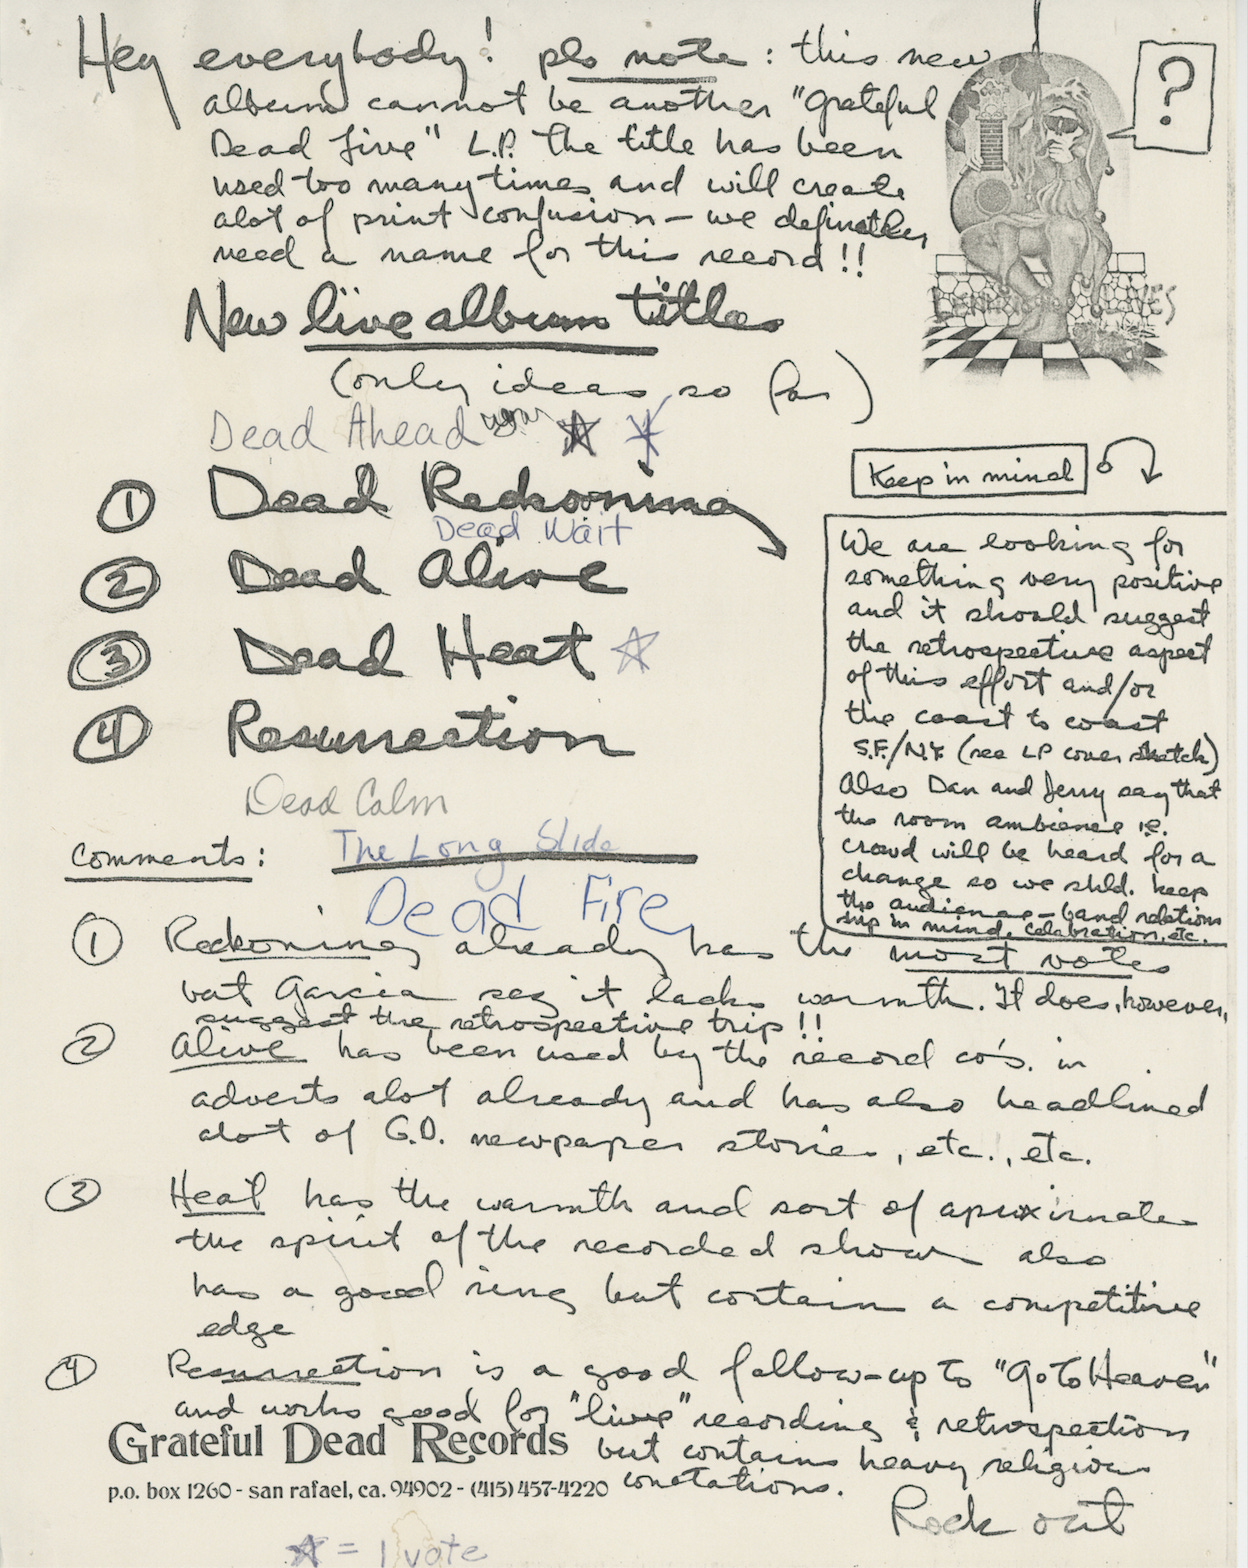 Hey everybody! pls note: this new
album cannot be another "Grateful
Dead Live" L.P. The title has been
used too many times and will create
alot of print confusion — we definatley
need a name for this record!!
?
New live album titles
(only ideas so far)
Dead Ahead
① Dead Reckoning
Dead Wait
② Dead Alive
③ Dead Heat
④ Resurrection
Dead Calm
The Long Slide
Dead Fire
Keep in mind
We are looking for
something very positive
and it should suggest
the retrospective aspect
of this effort and/or
the coast to coast
S.F./N.Y. (see LP cover sketch)
Also Dan and Jerry say that
the room ambience i.e.
crowd will be heard for a
change so we shld. keep
the audience-band relations
hip in mind. Celabration, etc.
Comments:
① Reckoning already has the most votes
but Garcia sez it lacks warmth. It does, however,
suggest the retrospective trip!!
② Alive has been used by the record co's. in
adverts alot already and has also headlined
alot of G.D. newpaper stories, etc., etc.
③ Heat has the warmth and sort of aproximates
the spirit of the recorded shows also
has a good ring but contains a competitive
edge
④ Resurrection is a good follow-up to "Go To Heaven"
and works good for "live" recording & retrospection
but contains heavy religious
conotations.
Grateful Dead Records
p.o. box 1260 - san rafael, ca. 94902 - (415) 457-4220
Rock out
☆ = 1 vote